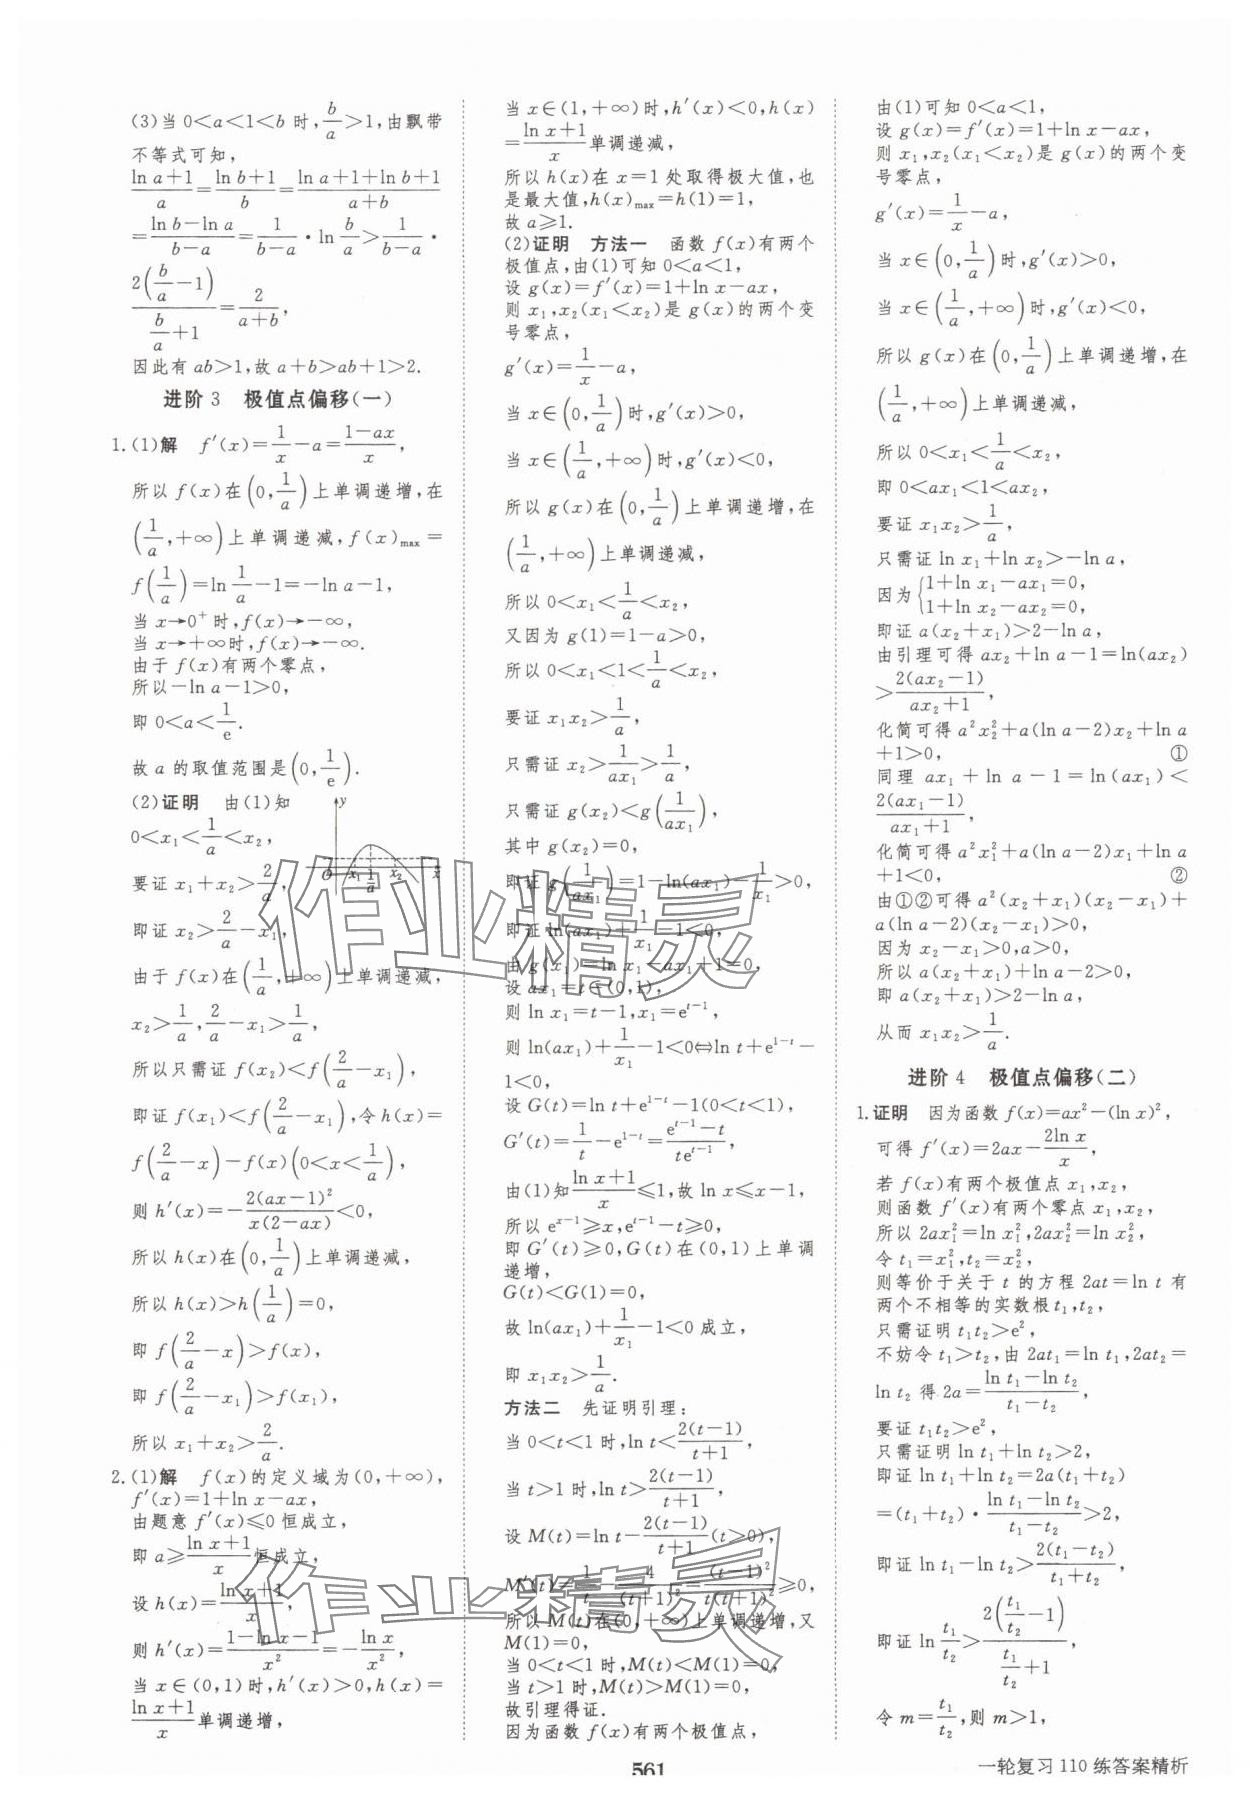 (3)当 0<a<1<b 时,b/a>1,由飘带
不等式可知,
(ln a+1)/a=(ln b+1)/b=(ln a+1+ln b+1)/(a+b)
=(ln b-ln a)/(b-a)=1/(b-a)·ln b/a>1/(b-a)·
2(b/a-1)/(b/a+1)=2/(a+b),
因此有 ab>1,故 a+b>ab+1>2.
进阶 3 极值点偏移(一)
1.(1)解 f′(x)=1/x-a=(1-ax)/x,
所以 f(x)在(0,1/a)上单调递增,在
(1/a,+∞)上单调递减,f(x)max=
f(1/a)=ln 1/a-1=-ln a-1,
当 x→0⁺ 时,f(x)→-∞,
当 x→+∞时,f(x)→-∞.
由于 f(x)有两个零点,
所以-ln a-1>0,
即 0<a<1/e.
故 a 的取值范围是(0,1/e).
(2)证明 由(1)知
0<x₁<1/a<x₂,
要证 x₁+x₂>2/a,
即证 x₂>2/a-x₁,
由于 f(x)在(1/a,+∞)上单调递减,
x₂>1/a,2/a-x₁>1/a,
所以只需证 f(x₂)<f(2/a-x₁),
即证 f(x₁)<f(2/a-x₁),令 h(x)=
f(2/a-x)-f(x)(0<x<1/a),
则 h′(x)=-2(ax-1)²/(x(2-ax))<0,
所以 h(x)在(0,1/a)上单调递减,
所以 h(x)>h(1/a)=0,
即 f(2/a-x)>f(x),
即 f(2/a-x₁)>f(x₁),
所以 x₁+x₂>2/a.
2.(1)解 f(x)的定义域为(0,+∞),
f′(x)=1+ln x-ax,
由题意 f′(x)≤0 恒成立,
即 a≥(ln x+1)/x恒成立,
设 h(x)=(ln x+1)/x,
则 h′(x)=(1-ln x-1)/x²=-ln x/x²,
当 x∈(0,1)时,h′(x)>0,h(x)=
(ln x+1)/x单调递增,
当 x∈(1,+∞)时,h′(x)<0,h(x)
=(ln x+1)/x单调递减,
所以 h(x)在 x=1 处取得极大值,也
是最大值,h(x)max=h(1)=1,
故 a≥1.
(2)证明 方法一 函数 f(x)有两个
极值点,由(1)可知 0<a<1,
设 g(x)=f′(x)=1+ln x-ax,
则 x₁,x₂(x₁<x₂)是 g(x)的两个变
号零点,
g′(x)=1/x-a,
当 x∈(0,1/a)时,g′(x)>0,
当 x∈(1/a,+∞)时,g′(x)<0,
所以 g(x)在(0,1/a)上单调递增,在
(1/a,+∞)上单调递减,
所以 0<x₁<1/a<x₂,
又因为 g(1)=1-a>0,
所以 0<x₁<1<1/a<x₂,
要证 x₁x₂>1/a,
只需证 x₂>1/(ax₁)>1/a,
只需证 g(x₂)<g(1/(ax₁)),
其中 g(x₂)=0,
即证 g(1/(ax₁))=1-ln(ax₁)-1/x₁>0,
即证 ln(ax₁)+1/x₁-1<0,
由 g(x₁)=ln x₁-ax₁+1=0,
设 ax₁=t∈(0,1),
则 ln x₁=t-1,x₁=e^(t-1),
则 ln(ax₁)+1/x₁-1<0⇔ln t+e^(1-t)-
1<0,
设 G(t)=ln t+e^(1-t)-1(0<t<1),
G′(t)=1/t-e^(1-t)=(e^(t-1)-t)/(te^(t-1)),
由(1)知(ln x+1)/x≤1,故 ln x≤x-1,
所以 e^(x-1)≥x,e^(t-1)-t≥0,
即 G′(t)≥0,G(t)在(0,1)上单调
递增,
G(t)<G(1)=0,
故 ln(ax₁)+1/x₁-1<0 成立,
即 x₁x₂>1/a.
方法二 先证明引理:
当 0<t<1 时,ln t<2(t-1)/(t+1),
当 t>1 时,ln t>2(t-1)/(t+1),
设 M(t)=ln t-2(t-1)/(t+1)(t>0),
M′(t)=1/t-4/(t+1)²=(t-1)²/(t(t+1)²)≥0,
所以 M(t)在(0,+∞)上单调递增,又
M(1)=0,
当 0<t<1 时,M(t)<M(1)=0,
当 t>1 时,M(t)>M(1)=0,
故引理得证.
因为函数 f(x)有两个极值点,
由(1)可知 0<a<1,
设 g(x)=f′(x)=1+ln x-ax,
则 x₁,x₂(x₁<x₂)是 g(x)的两个变
号零点,
g′(x)=1/x-a,
当 x∈(0,1/a)时,g′(x)>0,
当 x∈(1/a,+∞)时,g′(x)<0,
所以 g(x)在(0,1/a)上单调递增,在
(1/a,+∞)上单调递减,
所以 0<x₁<1/a<x₂,
即 0<ax₁<1<ax₂,
要证 x₁x₂>1/a,
只需证 ln x₁+ln x₂>-ln a,
因为{1+ln x₁-ax₁=0,
1+ln x₂-ax₂=0,
即证 a(x₂+x₁)>2-ln a,
由引理可得 ax₂+ln a-1=ln(ax₂)
>2(ax₂-1)/(ax₂+1),
化简可得 a²x₂²+a(ln a-2)x₂+ln a
+1>0, ①
同理 ax₁+ln a-1=ln(ax₁)<
2(ax₁-1)/(ax₁+1),
化简可得 a²x₁²+a(ln a-2)x₁+ln a
+1<0, ②
由①②可得 a²(x₂+x₁)(x₂-x₁)+
a(ln a-2)(x₂-x₁)>0,
因为 x₂-x₁>0,a>0,
所以 a(x₂+x₁)+ln a-2>0,
即 a(x₂+x₁)>2-ln a,
从而 x₁x₂>1/a.
进阶 4 极值点偏移(二)
1.证明 因为函数 f(x)=ax²-(ln x)²,
可得 f′(x)=2ax-2ln x/x,
若 f(x)有两个极值点 x₁,x₂,
则函数 f′(x)有两个零点 x₁,x₂,
所以 2ax₁²=ln x₁²,2ax₂²=ln x₂²,
令 t₁=x₁²,t₂=x₂²,
则等价于关于 t 的方程 2at=ln t 有
两个不相等的实数根 t₁,t₂,
只需证明 t₁t₂>e²,
不妨令 t₁>t₂,由 2at₁=ln t₁,2at₂=
ln t₂ 得 2a=(ln t₁-ln t₂)/(t₁-t₂),
要证 t₁t₂>e²,
只需证明 ln t₁+ln t₂>2,
即证 ln t₁+ln t₂=2a(t₁+t₂)
=(t₁+t₂)·(ln t₁-ln t₂)/(t₁-t₂)>2,
即证 ln t₁-ln t₂>2(t₁-t₂)/(t₁+t₂),
即证 ln t₁/t₂>2(t₁/t₂-1)/(t₁/t₂+1),
令 m=t₁/t₂,则 m>1,
561
一轮复习 110 练答案精析
作业精灵
作业精灵